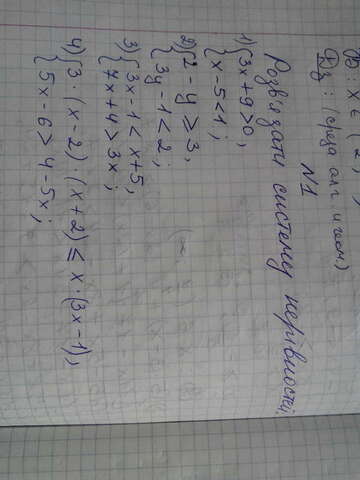 Дз: (среда алг и геом)
N1
Розв'язати систему нерівностей
1) { 3x+9>0,
x-5<1;
2) { 2-y≥3,
3y-1<2;
3) { 3x-1<x+5,
7x+4>3x;
4) { 3·(x-2)·(x+2)≤x·(3x-1),
5x-6>4-5x;